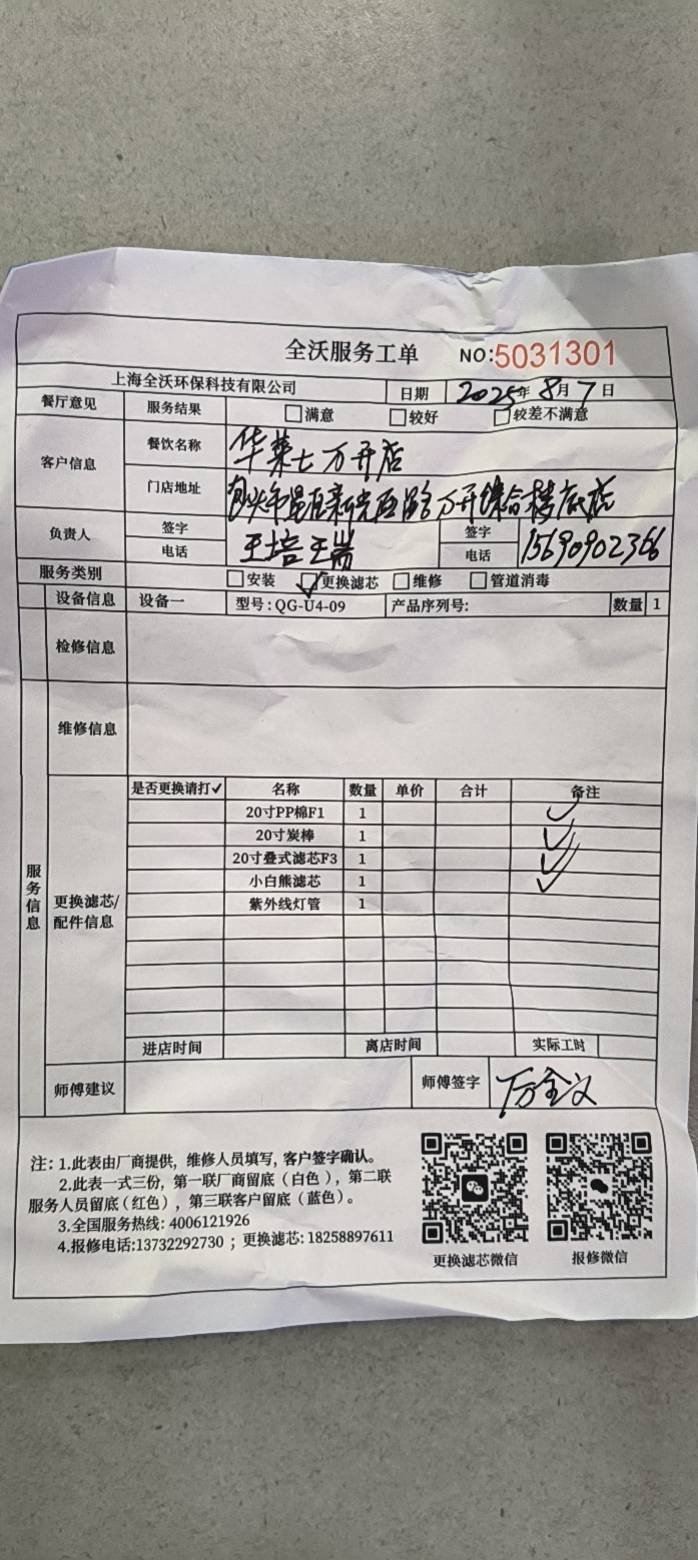 全沃服务工单 NO:5031301
上海全沃环保科技有限公司 日期 2025年8月7日
餐厅意见 服务结果 满意 较好 较差不满意
客户信息 餐饮名称 华莱士万开店
门店地址 包头市 区新光西路万开综合楼底店
负责人 签字 签字
电话 王培 电话 15690902366
服务类别 安装 ✓更换滤芯 维修 管道消毒
设备信息 设备一 型号:QG-U4-09 产品序列号: 数量 1
检修信息
维修信息
服务信息
更换滤芯/配件信息
是否更换请打✓ 名称 数量 单价 合计 备注
20寸PP棉F1 1 ✓
20寸炭棒 1 ✓
20寸叠式滤芯F3 1 ✓
小白熊滤芯 1 ✓
紫外线灯管 1
进店时间 离店时间 实际工时
师傅建议 师傅签字
注: 1.此表由厂商提供, 维修人员填写, 客户签字确认。
2.此表一式三份, 第一联厂商留底(白色), 第二联
服务人员留底(红色), 第三联客户留底(蓝色)。
3.全国服务热线: 4006121926
4.报修电话:13732292730 ; 更换滤芯: 18258897611
更换滤芯微信 报修微信